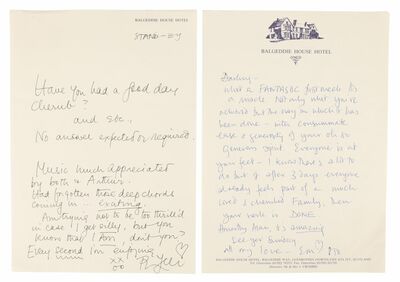 BALGEDDIE HOUSE HOTEL
STAND-BY
Have you had a good day
cherub?
and etc.,
No answer expected or required
Music much appreciated
by both + Arthur.
Had forgotten those deep chords
coming in... exciting.
Am trying not to be too thrill'd
in case I get silly, but you
know that I am, don't you?
Every second I'm enjoying
xx
oo
BALGEDDIE HOUSE HOTEL
Darling -
What a FANTASTIC first week's
Not only what you've
achieved but the way in which it has
been done - with consummate
ease & generosity of your oh so
generous spirit. Everyone is at
your feet - I know there's a lot to
do but if after 3 days everyone
already feels part of a much
loved & cherished family, then
your work is DONE
it's amazing
See you Sunday
all my love -